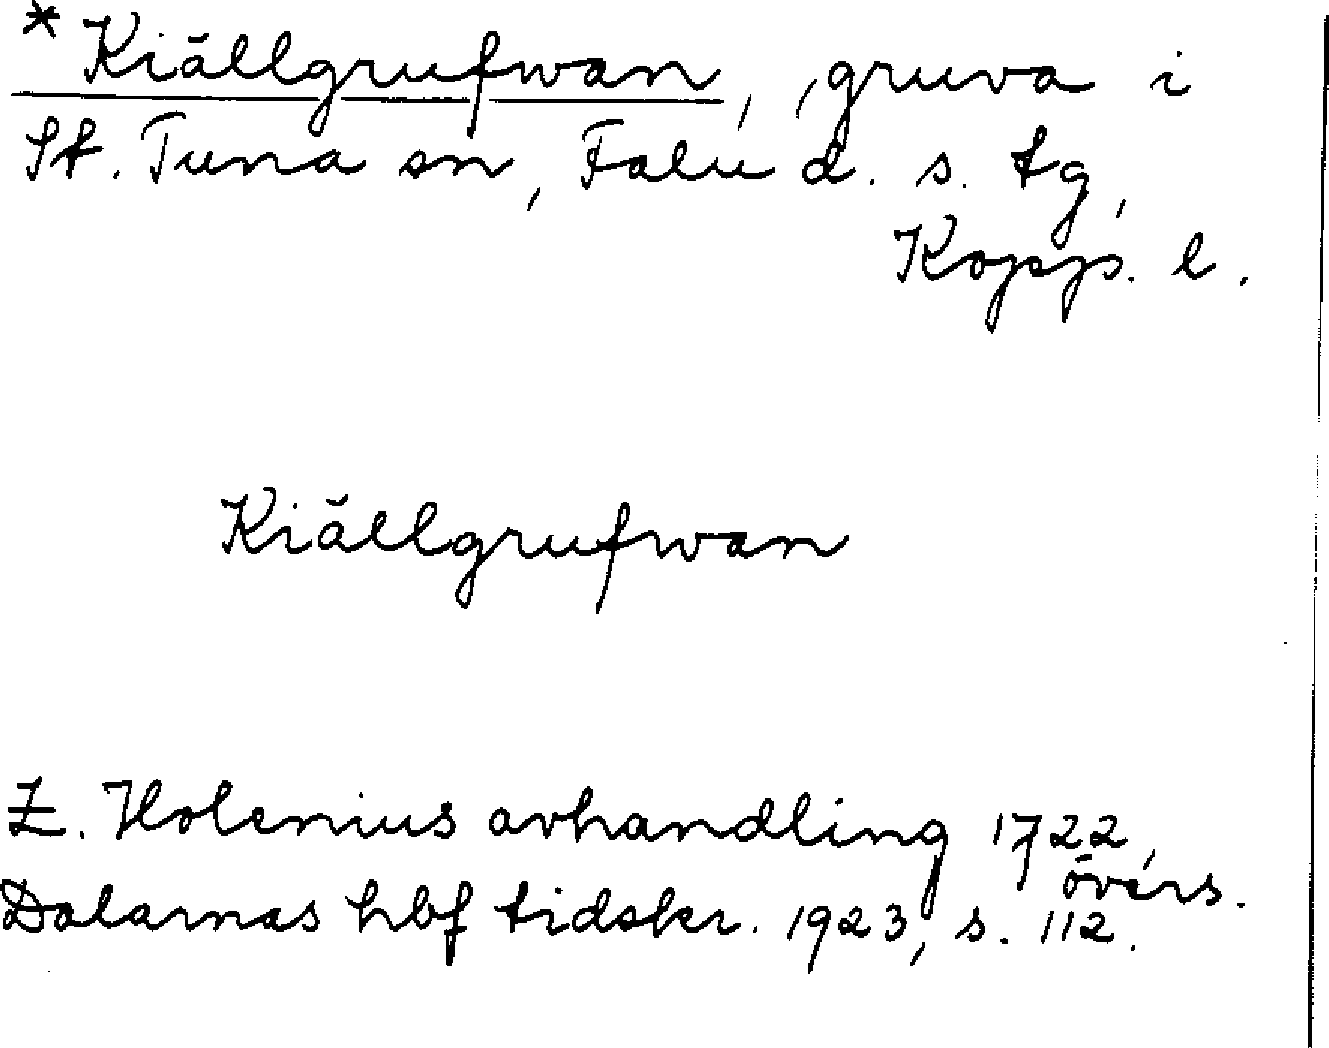 * Kiällgrufwan, gruva i
St. Tuna sn, Falu d. s. tg,
Kopp. l.
Kiällgrufwan
Z. Holenius avhandling 1722,
övers.
Dalarnas hbf tidskr. 1923, s. 112.